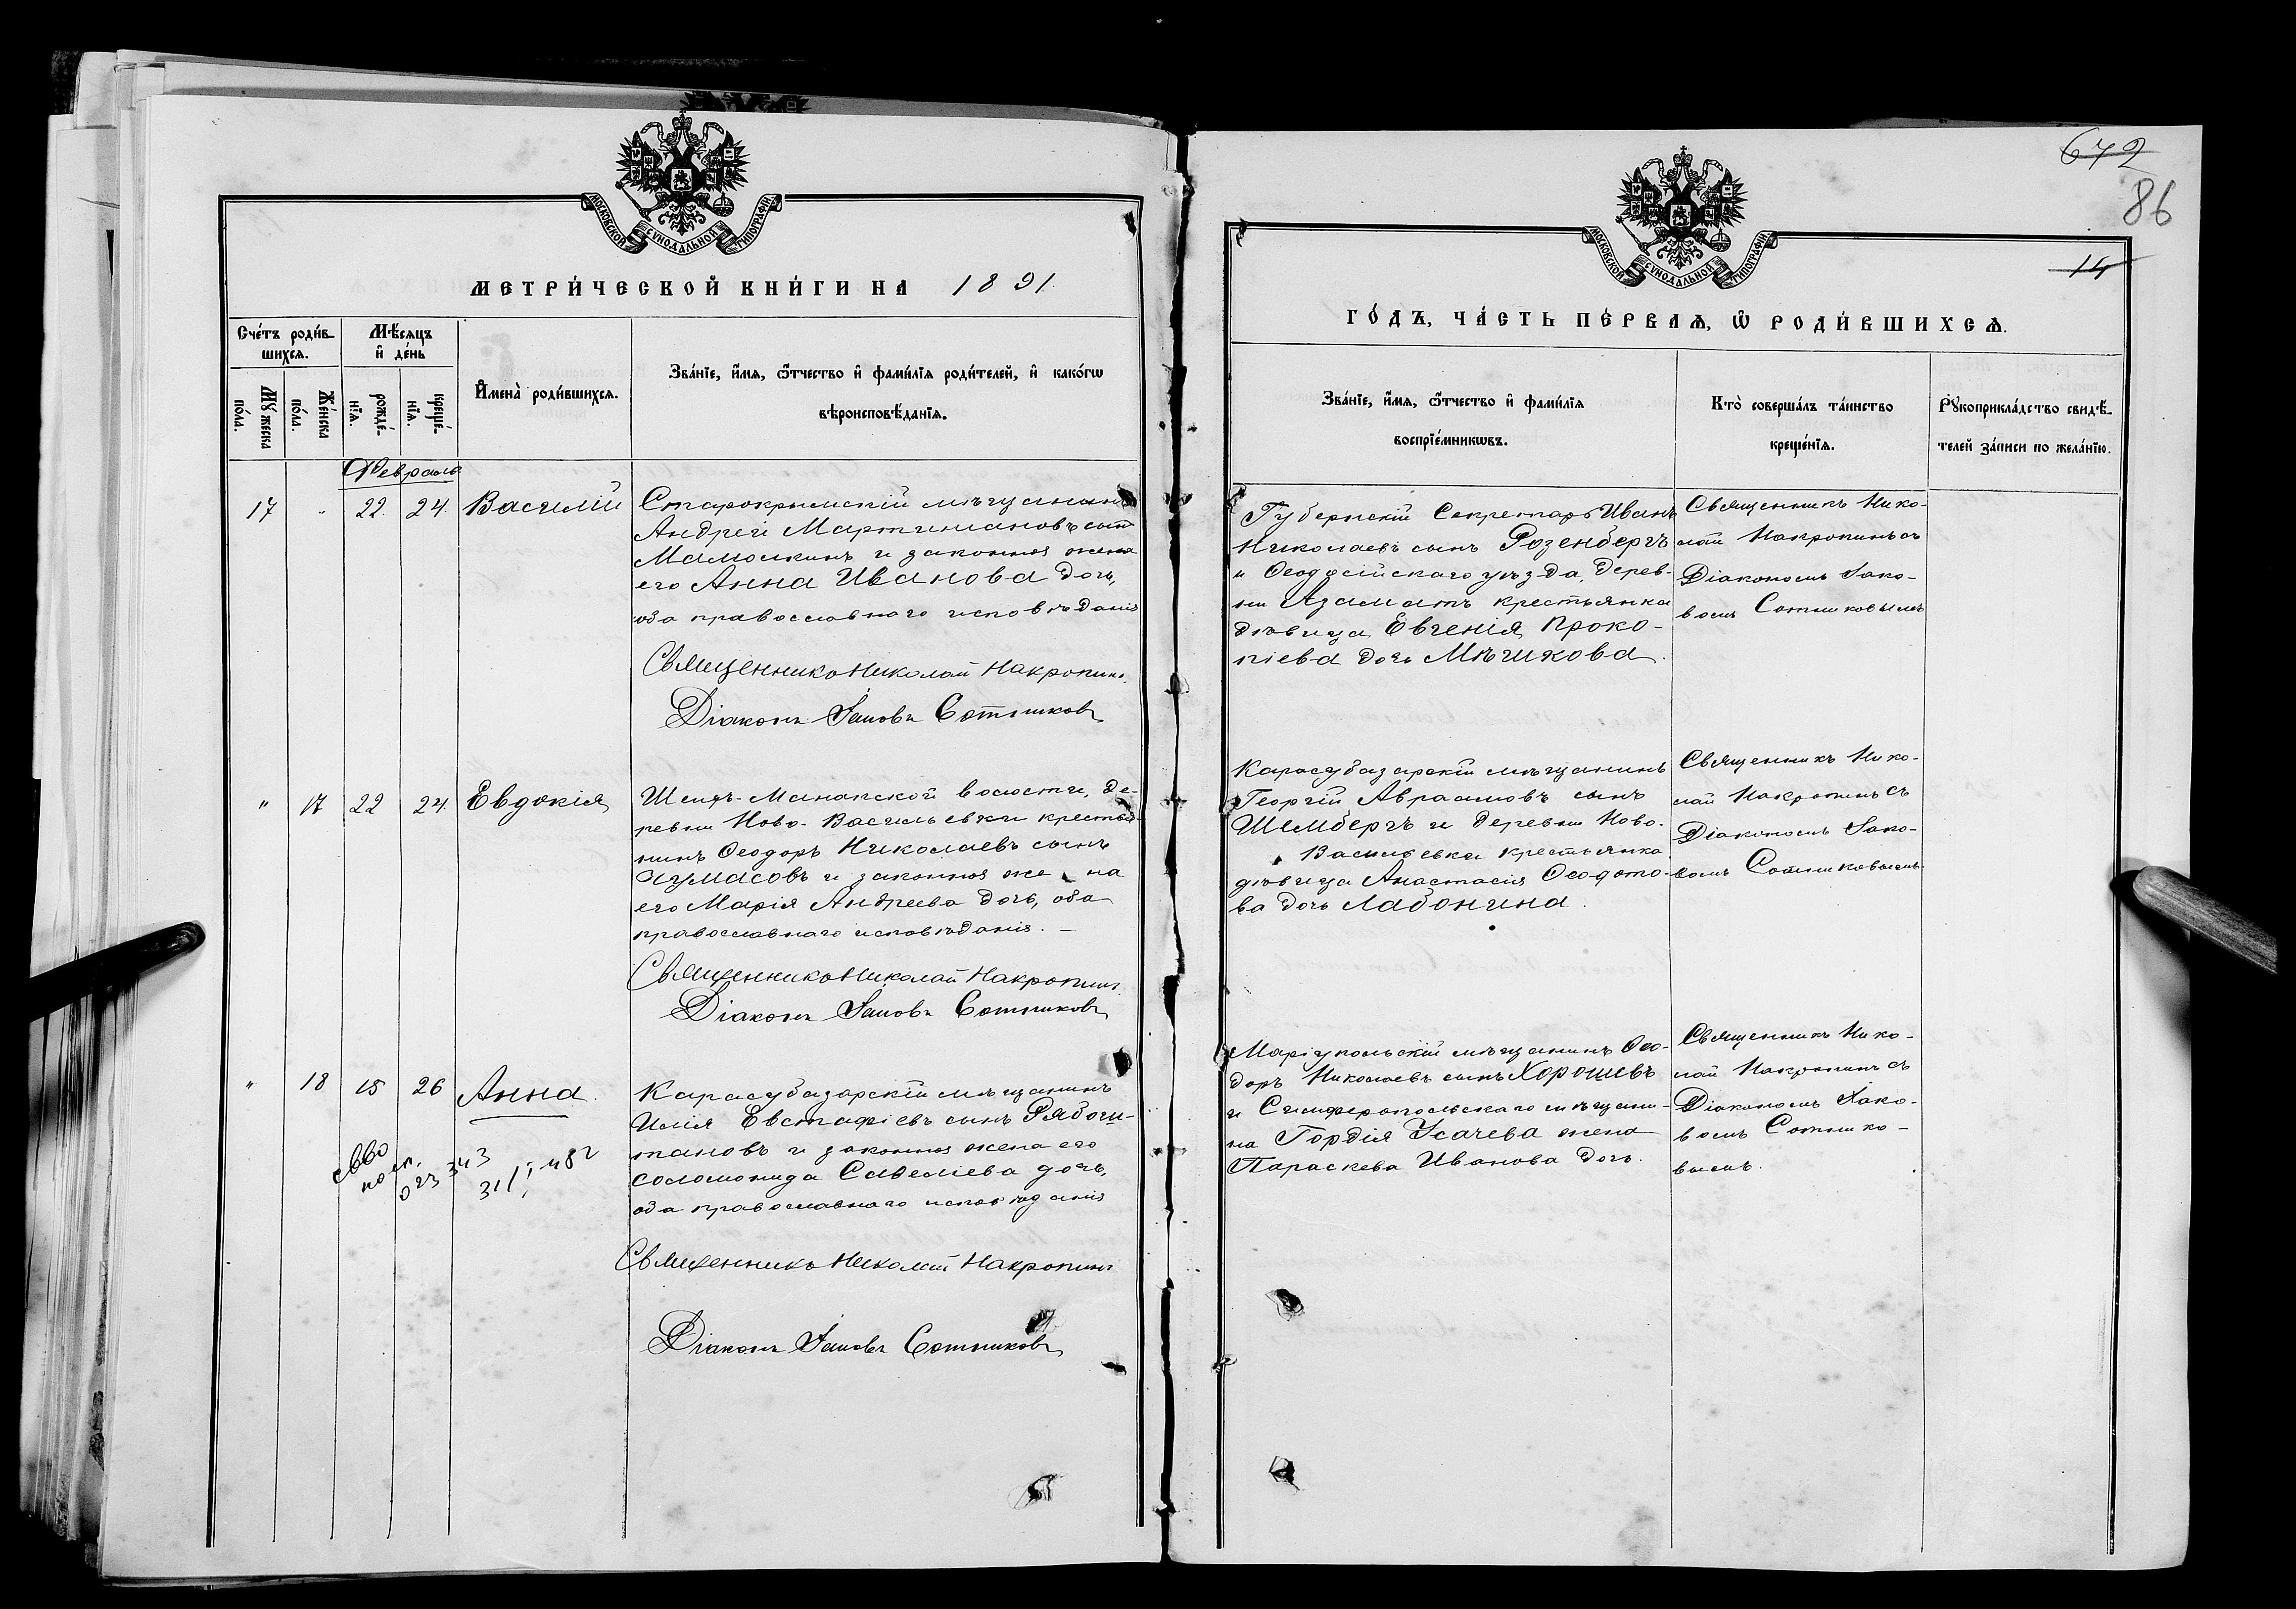 672
86
14
МОСКОВСКОЙ СѴНОДАЛЬНОЙ ТИПОГРАФІИ
МЕТРИ́ЧЕСКОЙ КНИ́ГИ НА 1891.
Сче́тъ роди́в-
шихсѧ.
Мѣ́сѧцъ
и҆ де́нь
Мꙋ́жеска по́ла.
Же́нска по́ла.
рожде́-
нїѧ.
креще́-
нїѧ.
И҆мена̀ роди́вшихсѧ.
Зва́нїе, и҆́мѧ, ѻ҆́тчество и҆ фами́лїѧ роди́телей, и҆ како́гѡ
вѣроисповѣ́данїѧ.
Февраль
17 " 22. 24. Василій
Старокрымскій мѣщанинъ
Андрей Мартиніановъ сынъ
Мамошкинъ и законная жена
его Анна Иванова дочь,
оба православнаго исповѣданія
Священникъ Николай Накропинъ.
Діаконъ Іаковъ Сотниковъ
" 17 22 24. Евдокія
Шейхъ-Манапской волости, де-
ревни Ново-Васильевки крестья-
нинъ Ѳеодоръ Николаевъ сынъ
и законная жена
его Марія Андреева дочь, оба
православнаго исповѣданія. –
Священникъ Николай Накропинъ.
Діаконъ Іаковъ Сотниковъ
" 18 15 26 Анна.
Карасубазарскій мѣщанинъ
Илія Евстафіевъ сынъ Рябоши-
тановъ и законная жена его
Соломонида Савеліева дочь,
оба православнаго исповѣданія
Священникъ Николай Накропинъ
Діаконъ Іаковъ Сотниковъ
ГО́ДЪ, ЧА́СТЬ ПЕ́РВАѦ, Ѡ҆ РОДИ́ВШИХСѦ.
Зва́нїе, и҆́мѧ, ѻ҆́тчество и҆ фами́лїѧ
воспрїе́мникѡвъ.
Кто̀ соверша́лъ та́инство
креще́нїѧ.
Рꙋкоприкла́дство свидѣ́-
телей за́писи по жела́нїю.
Губернскій Секретарь Иванъ
Николаевъ сынъ Розенбергъ
и Ѳеодосійскаго уѣзда, дерев-
ни Азаматъ крестьянка
дѣвица Евгенія Проко-
піева дочь Мѣчикова.
Священникъ Нико-
лай Накропинъ съ
Діакономъ Іако-
вомъ Сотниковымъ
Карасубазарскій мѣщанинъ
Георгій Авраамовъ сынъ
Шембергъ и деревни Ново-
Васильевки крестьянка
дѣвица Анастасія Ѳеодото-
ва дочь Лабонина.
Священникъ Нико-
лай Накропинъ съ
Діакономъ Іако-
вомъ Сотниковымъ
Маріупольскій мѣщанинъ Ѳео-
доръ Николаевъ сынъ Хорошевъ
и Симферопольскаго мѣщани-
на Гордія Усачева жена
Параскева Иванова дочь.
Священникъ Нико-
лай Накропинъ съ
Діакономъ Іако-
вомъ Сотнико-
вымъ.